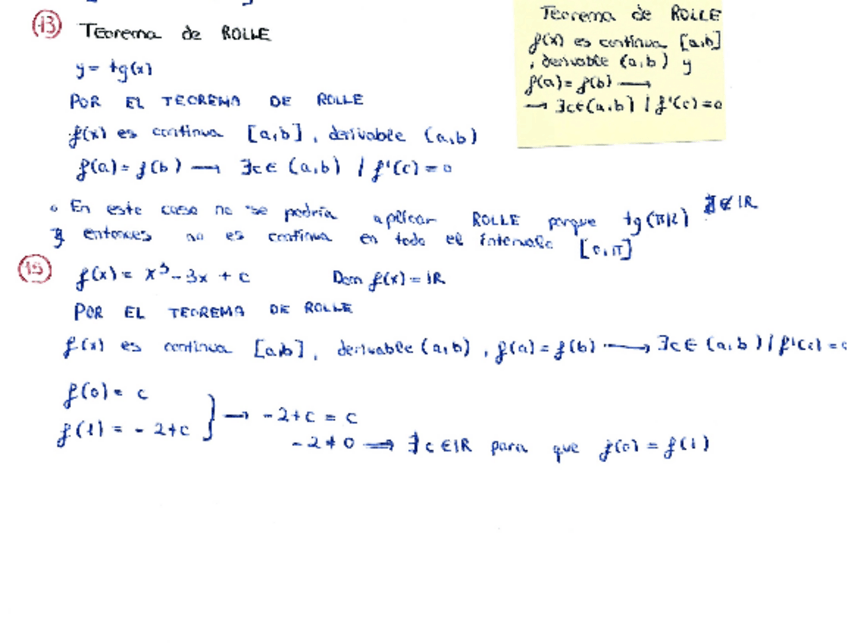 13 Teorema de ROLLE
y = tg(x)
POR EL TEOREMA DE ROLLE
f(x) es continua [a,b], derivable (a,b)
f(a) = f(b) → ∃c ∈ (a,b) / f'(c) = 0
Teorema de ROLLE
f(x) es continua [a,b]
, derivable (a,b) y
f(a) = f(b) →
→ ∃c∈(a,b) / f'(c) = 0
En este caso no se podría aplicar ROLLE porque tg(π/2) ∉ IR
y entonces no es continua en todo el intervalo [0,π]
15 f(x) = x³ - 3x + c Dom f(x) = IR
POR EL TEOREMA DE ROLLE
f(x) es continua [a,b], derivable (a,b), f(a) = f(b) → ∃c ∈ (a,b) / f'(c) = 0
f(0) = c
f(1) = -2+c } → -2+c = c
-2 ≠ 0 ⟹ ∄ c ∈ IR para que f(0) = f(1)